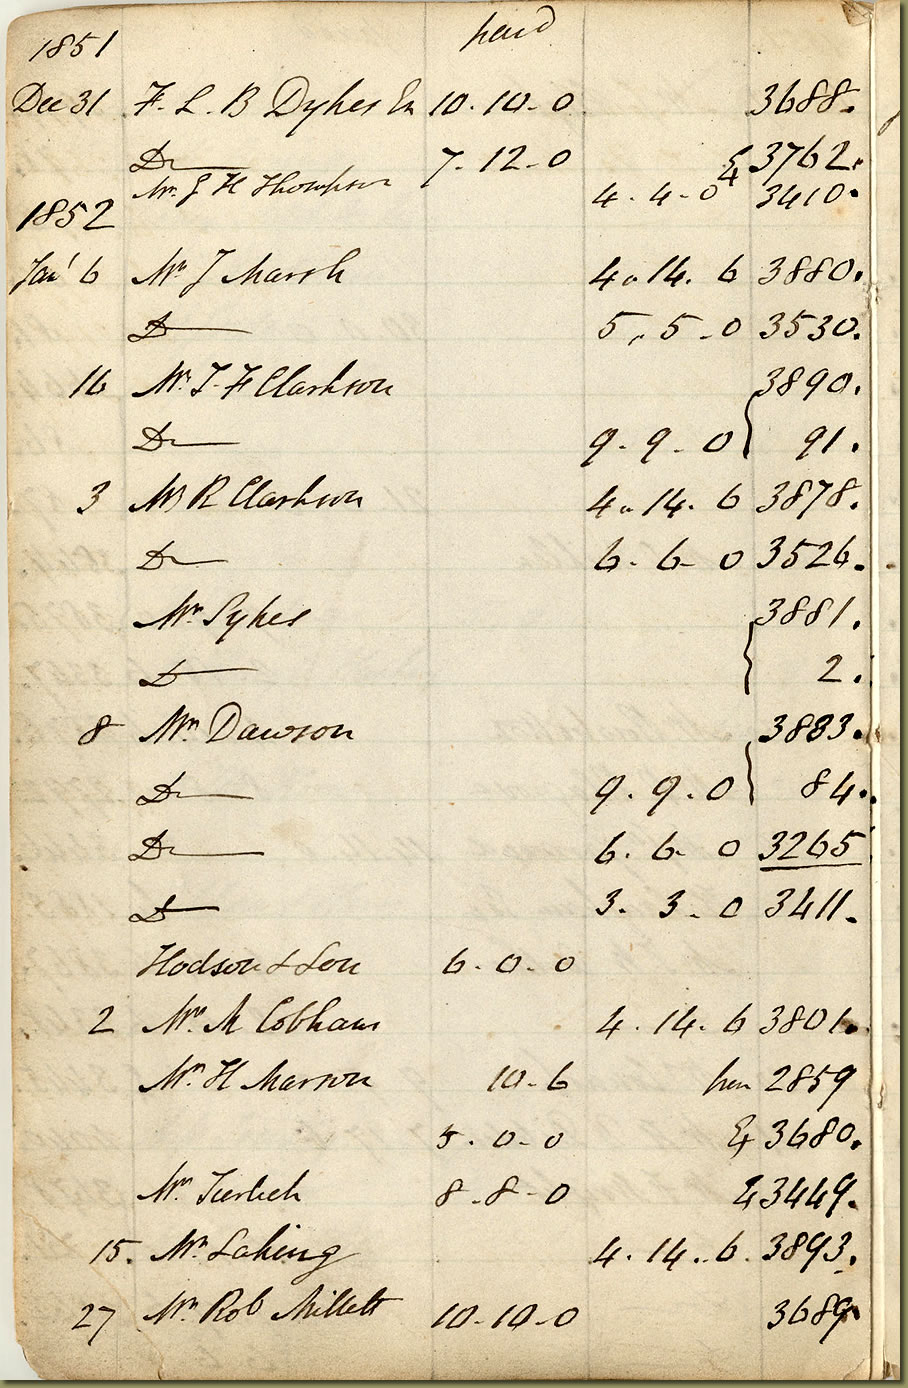 1851 paid
Dec 31 F. L. B Dykes 10.10-0 3688.
Do 7.12-0 & 3762.
Mr J H Thompson 4.4-0 & 3410.
1852
Jany 6 Mr J Marsh 4.14.6 3880.
Do 5.5-0 3530.
16 Mr T. F Clarkson 3890.
Do 9.9.0 } 91.
3 Mr R Clarkson 4.14.6 3878.
Do 6.6-0 3526.
Mr Sykes 3881.
Do } 2.
8 Mr Dawson 3883.
Do 9.9.0 } 84.
Do 6.6-0 3265
Do 3.3.0 3411.
Hodson & Son 6.0.0
2 Mr M Cobham 4.14.6 3801.
Mr H Marson 10-6 2859
5.0-0 & 3680.
Mr 8.8-0 & 3449.
15. Mr Laking 4.14.6. 3893.
27 Mr Rob Millett 10.10-0 3689